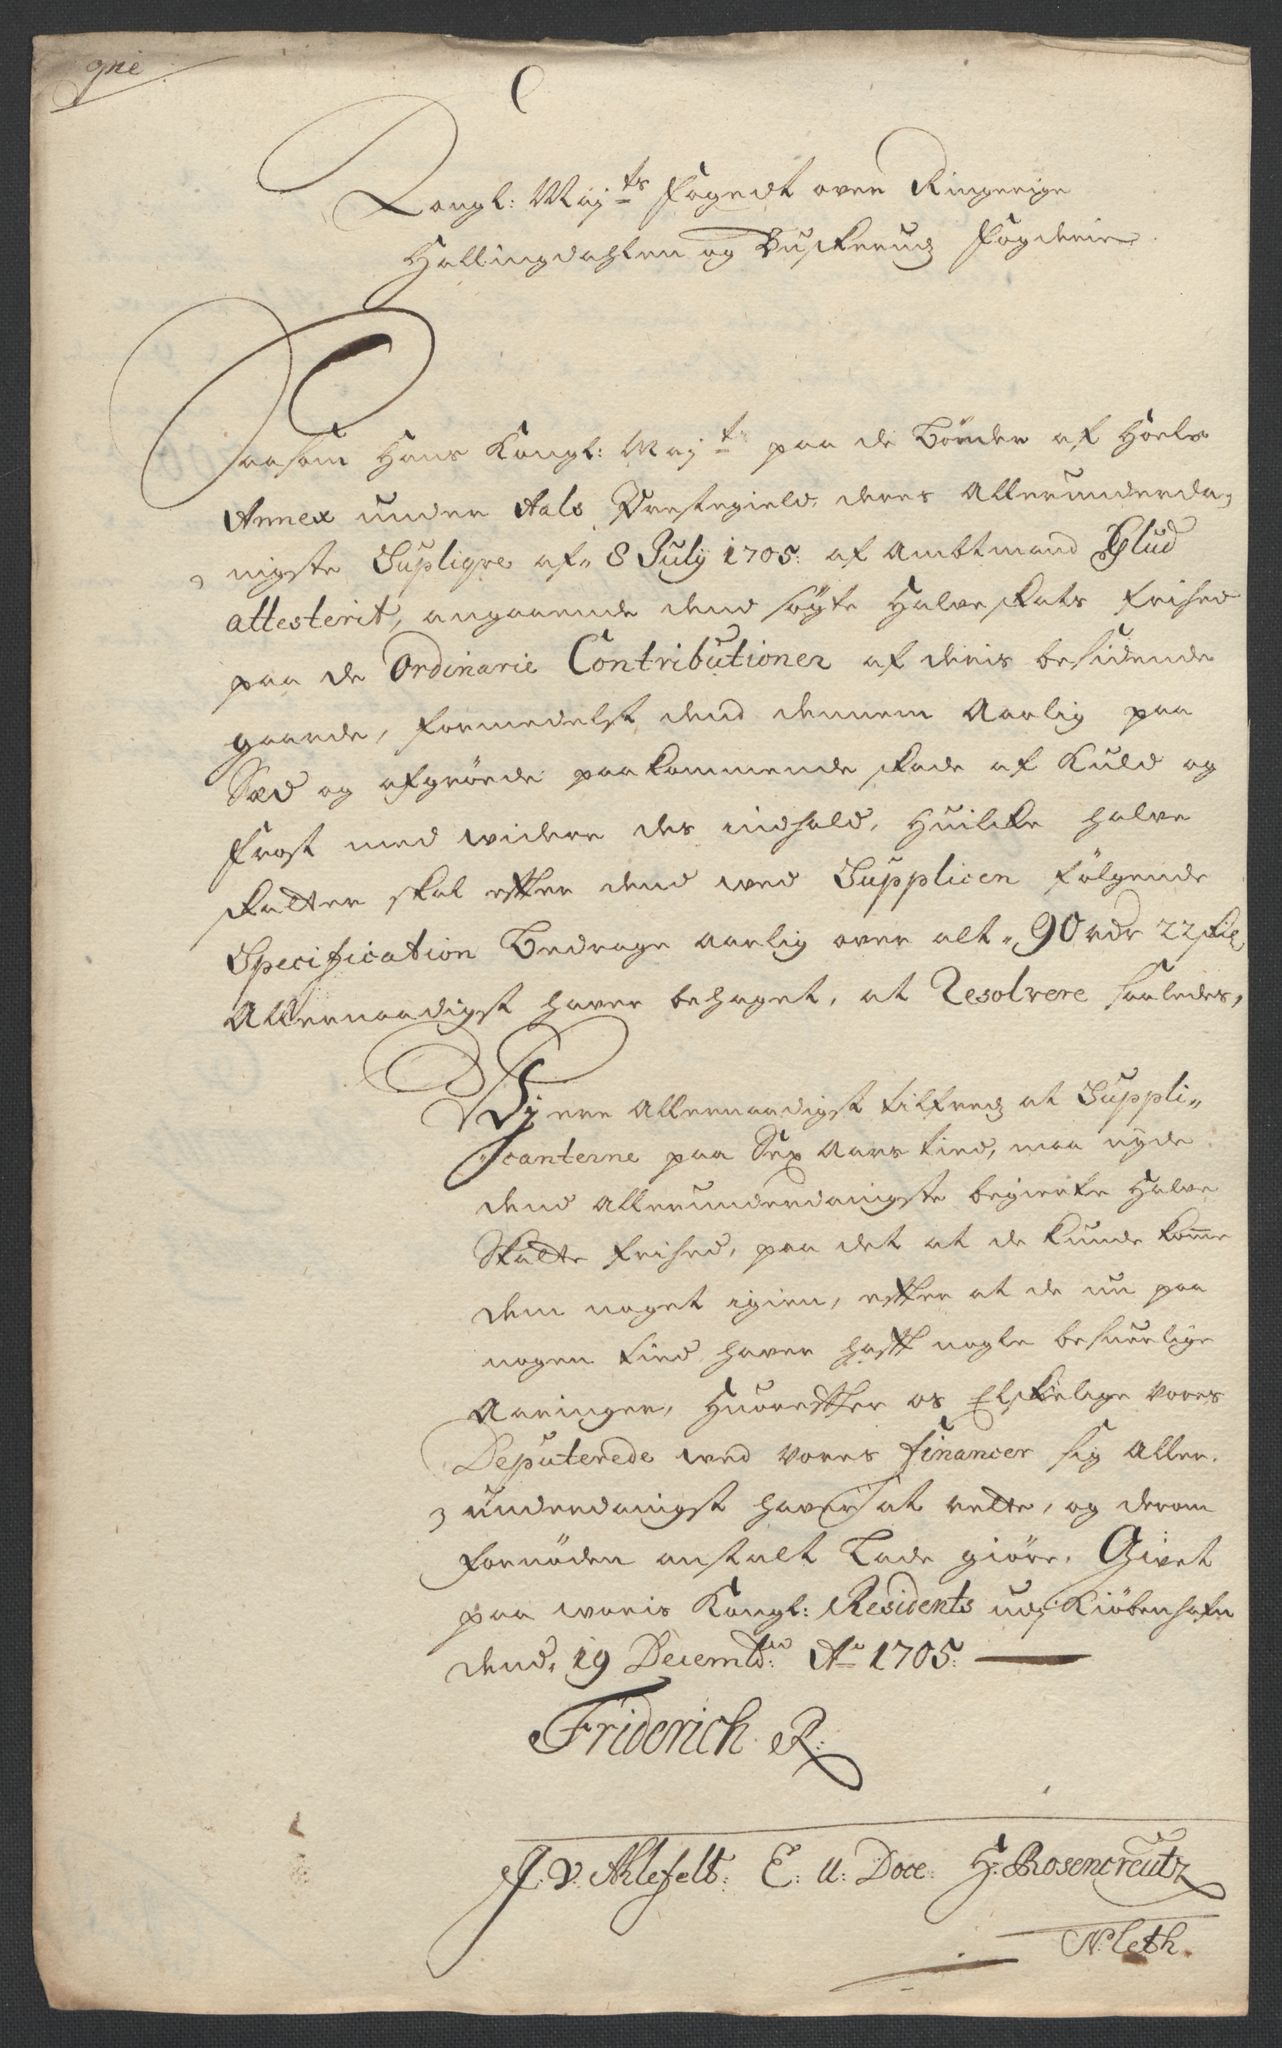 Kongl: Maj:ts Fogedt over Ringerige
Hallingdahlen og Buskeruds Fogderie
Saasom Hans Kongl: Maj:t paa de Bønder af Hoels
Annex under Aals Prestegield, deres Allerunderda-
nigste Supliqve af 8 July 1705. af Ambtmand Glud
attesterit, angaaende dend søgte Halve skats frihed
paa de Ordinarie Contributioner af deris besidende
gaarde, formedelst dend dennem Aarlig paa
Sæd og afgrøde paakommende skade af Kuld og
frost med widere des indhold, Huilcke halve
skatter skal effter dend wed Supplicen følgende
Specification Bedrage aarlig over alt 90 rdr 22 skl,
Allernaadigst haver behaget, at Resolvere saaledes,
Vj ere Allernaadigst tilfreds at Suppli-
canterne paa Sex Aars tied, maa nyde
dend Allerunderdanigste begierte Halve
Skatte frihed, paa det at de kunde komme
dem noget igien, effter at de nu paa
nogen tied haver hafft nogle besuerlige
Aaringer, Huoreffter os Elskelige Vores
Deputerede wed Vores financer sig Aller-
underdanigst haver at rette, og derom
fornøden anstalt Lade giøre. Givet
paa woris Kongl: Residents udj Kiøbenhafn
dend. 19 Decemb: Ao 1705.
Friderich R:
v. Ahlefelt. E: U: Dose: H: Rosencreutz
N: Leth.